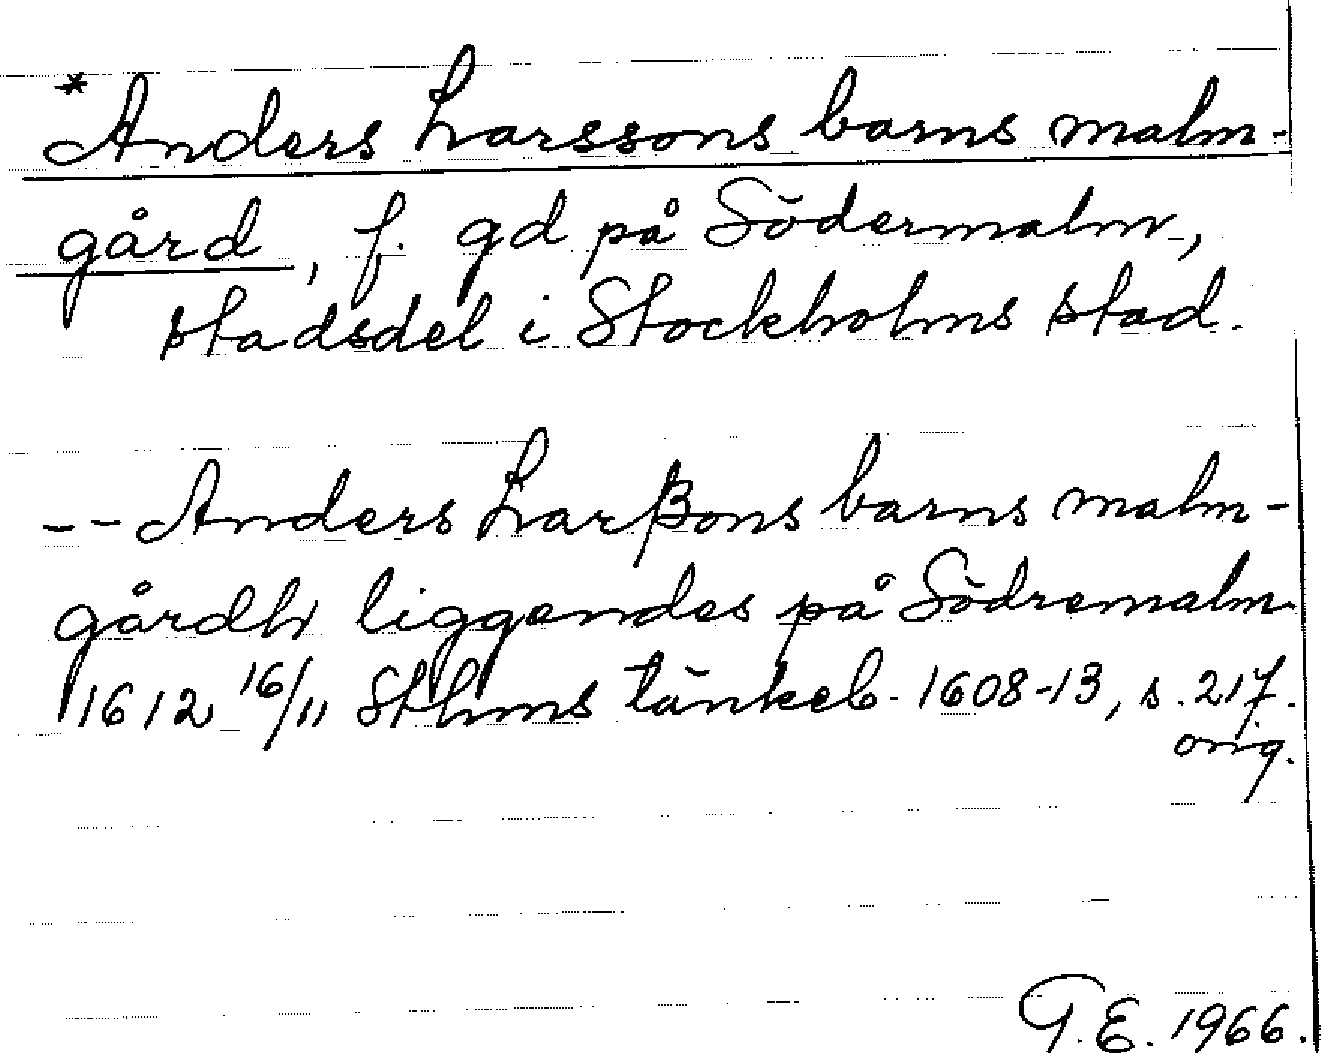 *Anders Larssons barns malm-
gård, f. gd på Södermalm,
stadsdel i Stockholms stad.
-- Anders Larßons barns malm-
gårdh liggendes på Södremalm.
1612 16/11 Sthms tänkeb. 1608-13, s. 217.
orig.
G.E. 1966.